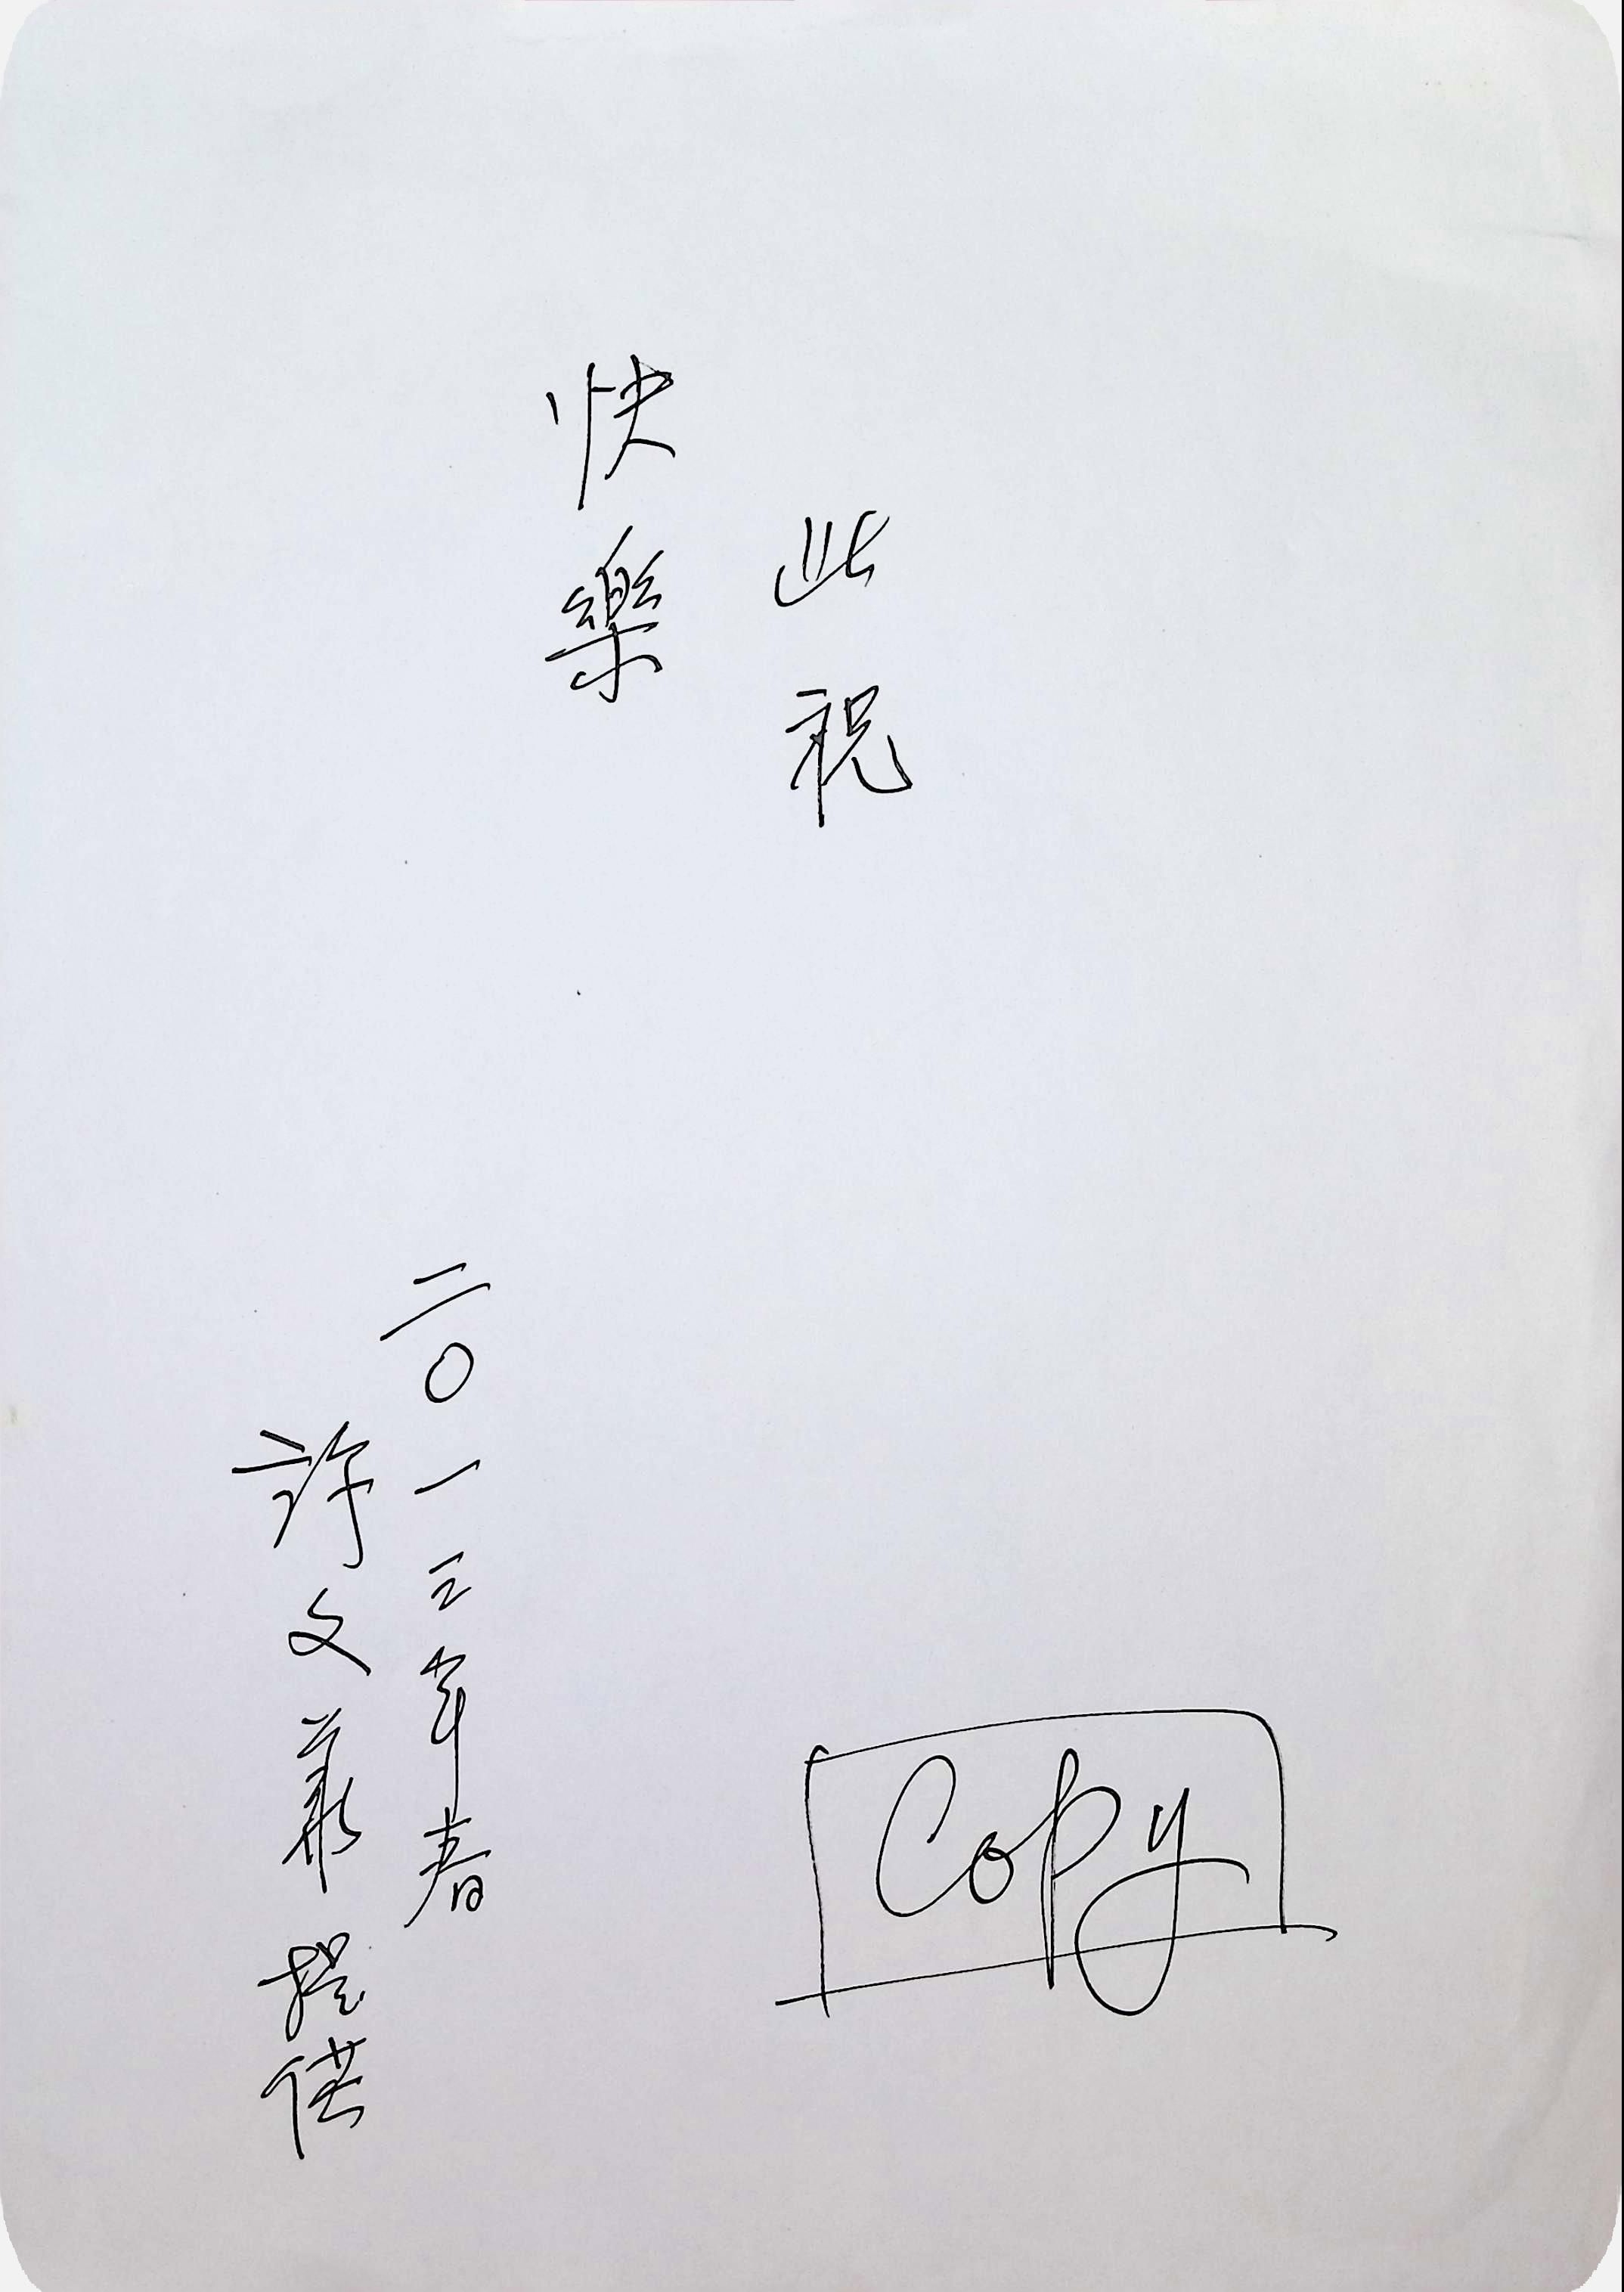 此祝
快樂
二〇一三年春
許文義提供
Copy